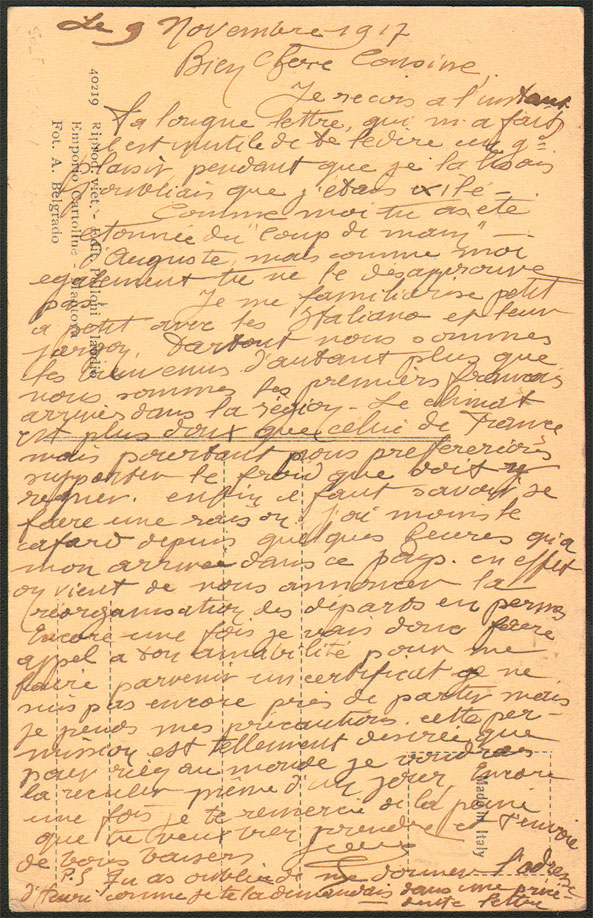 Le 9 Novembre 1917
Bien Chère Cousine,
Je reçois à l'instant
ta longue lettre, qui m'a fait
il est inutile de te le dire un g.d
plaisir pendant que je la lisais
j'oubliais que j'étais exilé —
Comme moi tu as été
étonnée du "coup de main" —
d'Auguste, mais comme moi
egalement tu ne le desapprouve
pas. Je me familiarise petit
a petit avec les Italiens et leur
jargon. Partout nous sommes
les bienvenus d'autant plus que
nous sommes les premiers français
arrivés dans la région — Le climat
est plus doux que celui de France
mais pourtant nous prefererions
supporter le froid que doit y
regner. enfin il faut savoir se
faire une raison j'ai moins le
cafard depuis quelques heures qu'a
mon arrivée dans ce pays. en effet
on vient de nous annoncer la
réorganisation des départs en perms
Encore une fois je vais donc faire
appel a ton amabilité pour me
faire parvenir un certificat je ne
suis pas encore près de partir mais
je prends mes précautions. cette per-
mission est tellement desirée que
pour rien au monde je voudrais
la reculer meme d'un jour. Encore
une fois je te remercie de la peine
que tu veux bien prendre et t'envoie
de bons baisers
P.S Tu as oublié de me donner l'adresse
d'Henri comme je te la demandais dans une précé-
dente lettre
40219 Riprod. viet. - Ediz.
Emporio Cartoline - Mantova
Fot. A. Belgrado
Made in Italy